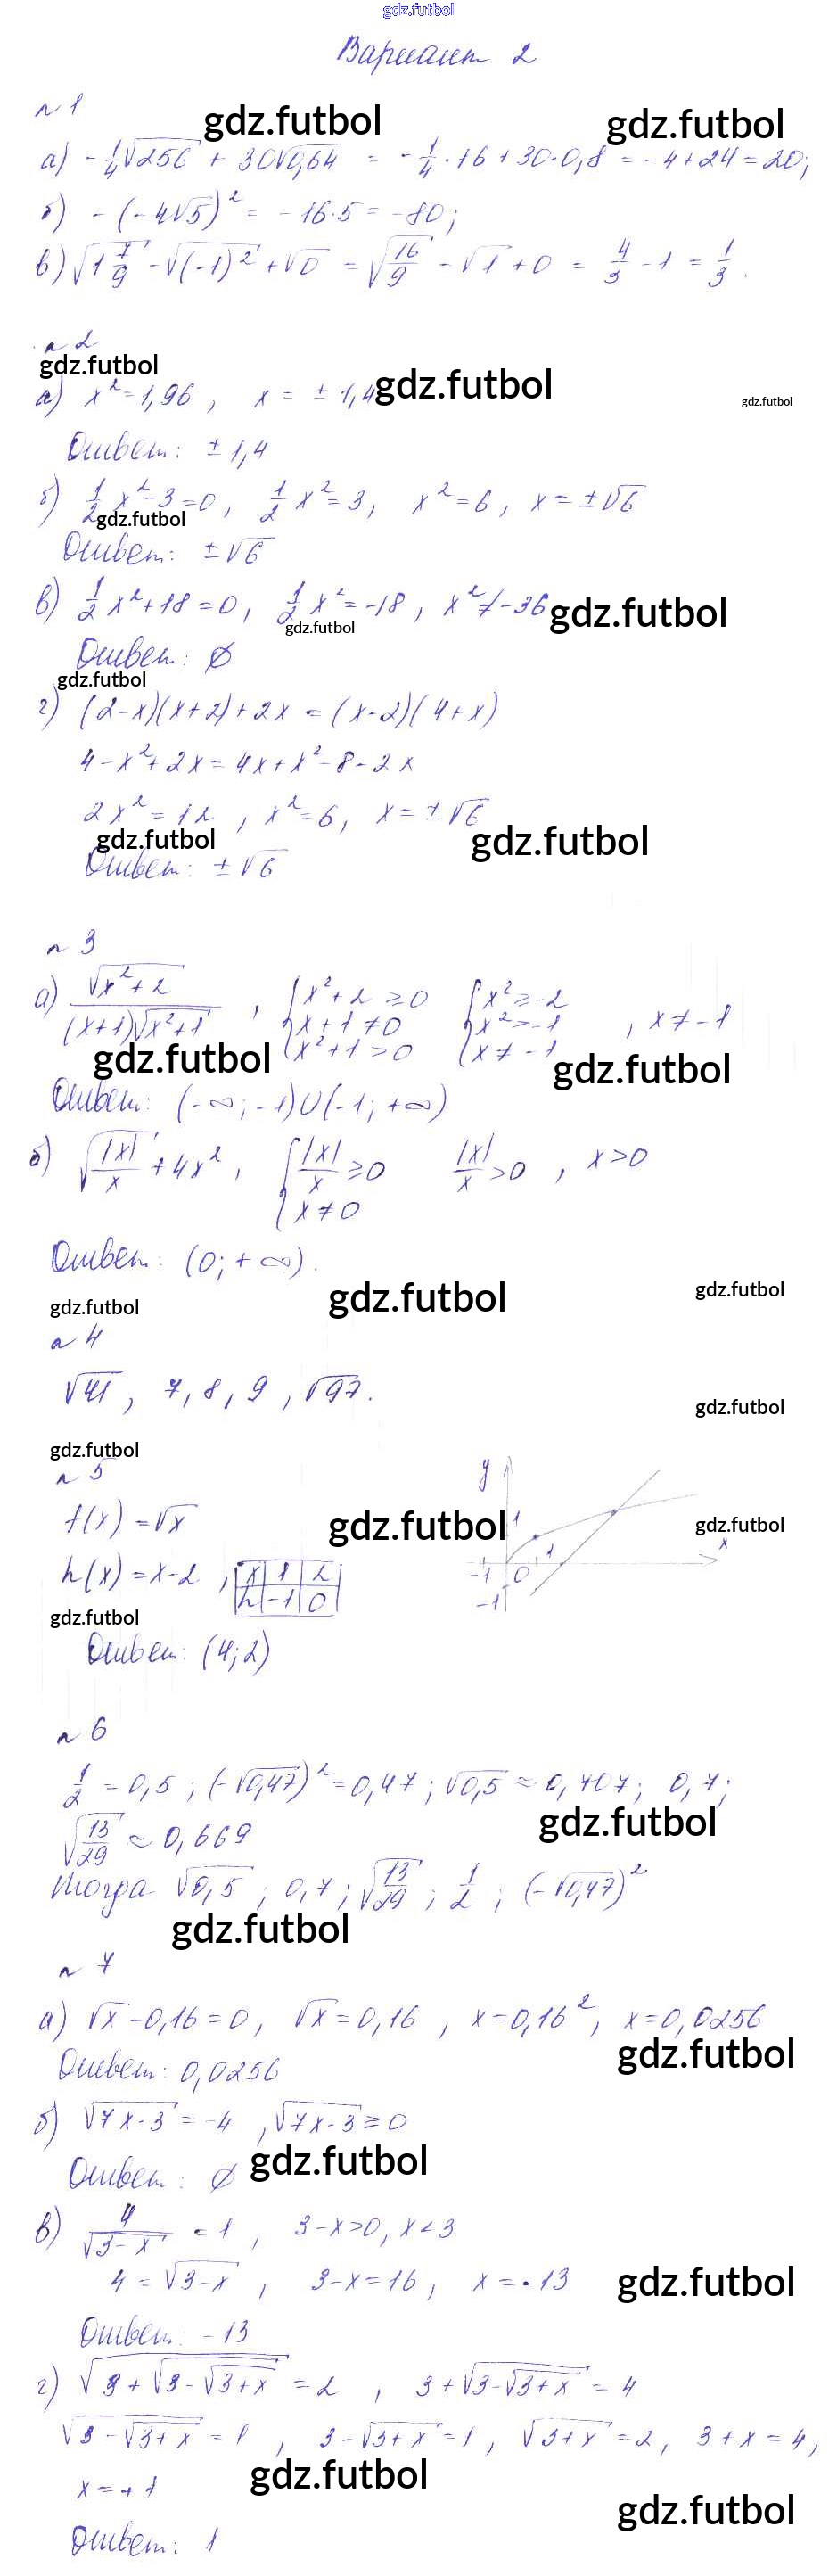 gdz.futbol
Вариант 2
n 1
gdz.futbol gdz.futbol
а) -1/4√256 + 30√0,64 = -1/4·16 + 30·0,8 = -4+24 = 20;
б) -(-4√5)² = -16·5 = -80;
в) √(1 7/9) - √((-1)²) + √0 = √(16/9) - √1 + 0 = 4/3 - 1 = 1/3.
n 2
gdz.futbol gdz.futbol gdz.futbol
а) x² = 1,96, x = ± 1,4
Ответ: ± 1,4
б) 1/2 x² - 3 = 0, 1/2 x² = 3, x² = 6, x = ±√6
gdz.futbol
Ответ: ±√6
в) 1/2 x² + 18 = 0, 1/2 x² = -18, x² ≠ -36
gdz.futbol
gdz.futbol
Ответ: ∅
gdz.futbol
г) (2-x)(x+2)+2x = (x-2)(4+x)
4-x²+2x = 4x+x²-8-2x
2x² = 12, x² = 6, x = ±√6
gdz.futbol gdz.futbol
Ответ: ±√6
n 3
а) √(x²+2) / ((x+1)√(x²+1)), { x²+2 ≥ 0 x+1 ≠ 0 x²+1 > 0 { x² ≥ -2 x² > -1 x ≠ -1, x ≠ -1
gdz.futbol gdz.futbol
Ответ: (-∞;-1)∪(-1;+∞)
б) √(|x|/x) + 4x², { |x|/x ≥ 0 x ≠ 0 |x|/x > 0, x > 0
Ответ: (0;+∞).
gdz.futbol gdz.futbol gdz.futbol
n 4
√41, 7, 8, 9, √97.
gdz.futbol
gdz.futbol
n 5
f(x) = √x
gdz.futbol gdz.futbol
h(x) = x-2, x 1 2
h -1 0
y 1 x -1 0 1 -1
gdz.futbol
Ответ: (4;2)
n 6
1/2 = 0,5; (-√0,47)² = 0,47; √0,5 ≈ 0,707; 0,7;
gdz.futbol
√(13/29) ≈ 0,669
Тогда √0,5; 0,7; √(13/29); 1/2; (-√0,47)²
gdz.futbol
n 7
а) √x - 0,16 = 0, √x = 0,16, x = 0,16², x = 0,0256
gdz.futbol
Ответ: 0,0256
б) √(7x-3) = -4, √(7x-3) ≥ 0
gdz.futbol
Ответ: ∅
в) 4/√(3-x) = 1, 3-x > 0, x < 3
4 = √(3-x), 3-x = 16, x = -13
gdz.futbol
Ответ: -13
г) √(3+√(3-√(3+x))) = 2, 3+√(3-√(3+x)) = 4
√(3-√(3+x)) = 1, 3-√(3+x) = 1, √(3+x) = 2, 3+x = 4,
gdz.futbol
x = +1
gdz.futbol
Ответ: 1